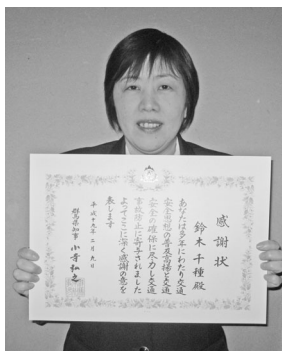 感謝状
鈴木千種殿
あなたは多年にわたり交通
安全思想の普及高揚と交通
安全の確保に尽力し交通
事故防止に寄与されました
よってここに深く感謝の意を
表します
平成十九年二月九日
群馬県知事 小寺弘之